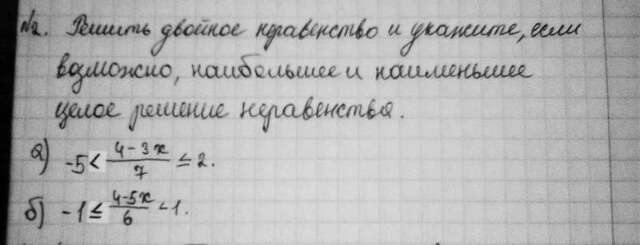 №2. Решить двойное неравенство и укажите, если
возможно, наибольшее и наименьшее
целое решение неравенства.
а) -5 < (4-3x)/7 ≤ 2.
б) -1 ≤ (4-5x)/6 < 1.